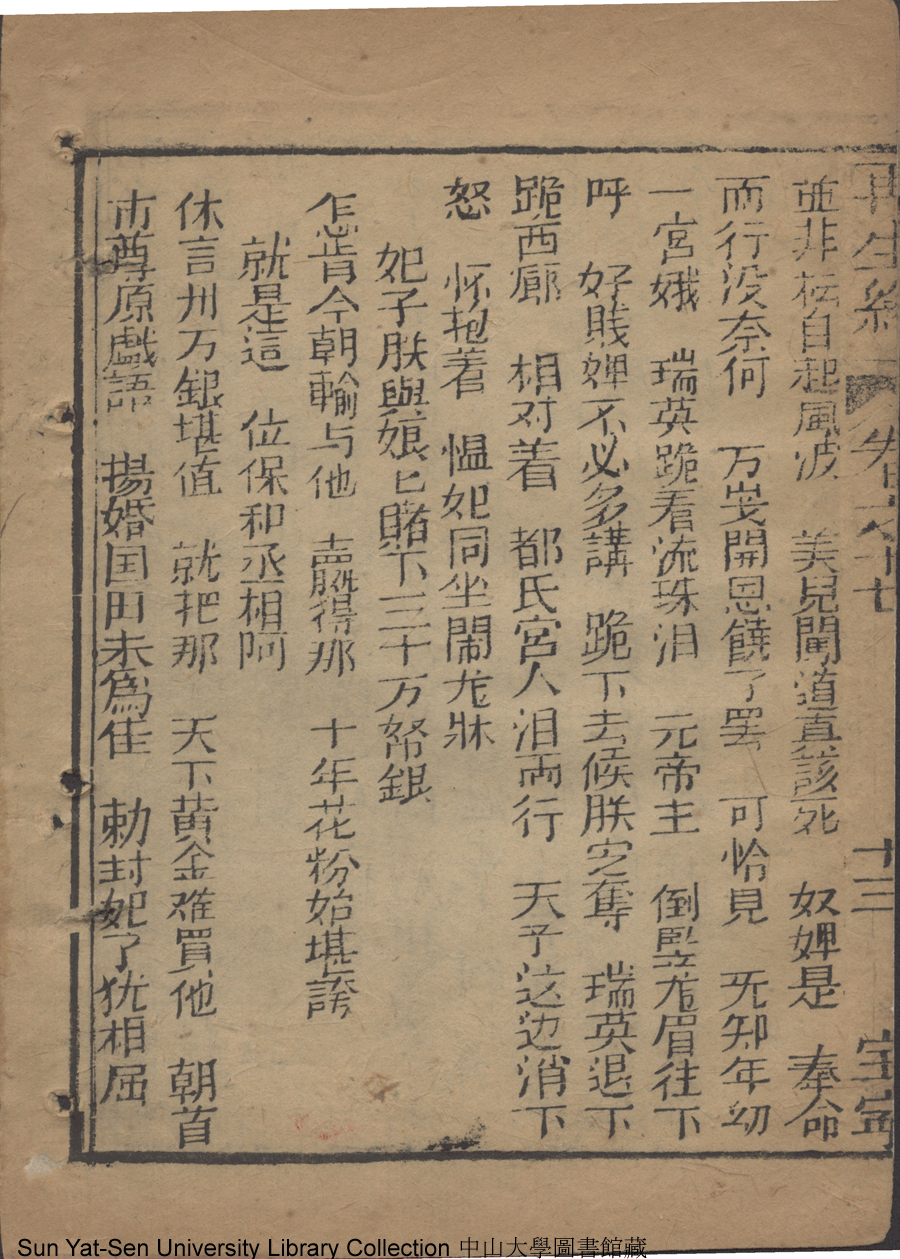 再生緣 卷之十七 十三 宝寧
並非枟自起風波 美兒闖道直該死 奴婢是 奉命
而行没奈何 万岁開恩饒了罢 可怜見 无知年幼
一宮娥 瑞英跪着流珠泪 元帝主 倒竪龙眉往下
呼 好賎婢不必多講 跪下去候朕定奪 瑞英退下
跪西廊 相对着 都氏宮人泪两行 天子这边消下
怒 怀抱着 愠妃同坐鬧龙牀
妃子朕與娘匕賭下三十万帑銀
怎肯今朝輸与他 贏得那 十年花粉始堪誇
就是這 位保和丞相阿
休言卅万銀堪值 就把那 天下黄金难買他 朝首
市尊原戲語 揚婚国田未為佳 勅封妃了犹相屈
Sun Yat-Sen University Library Collection 中山大學圖書館藏